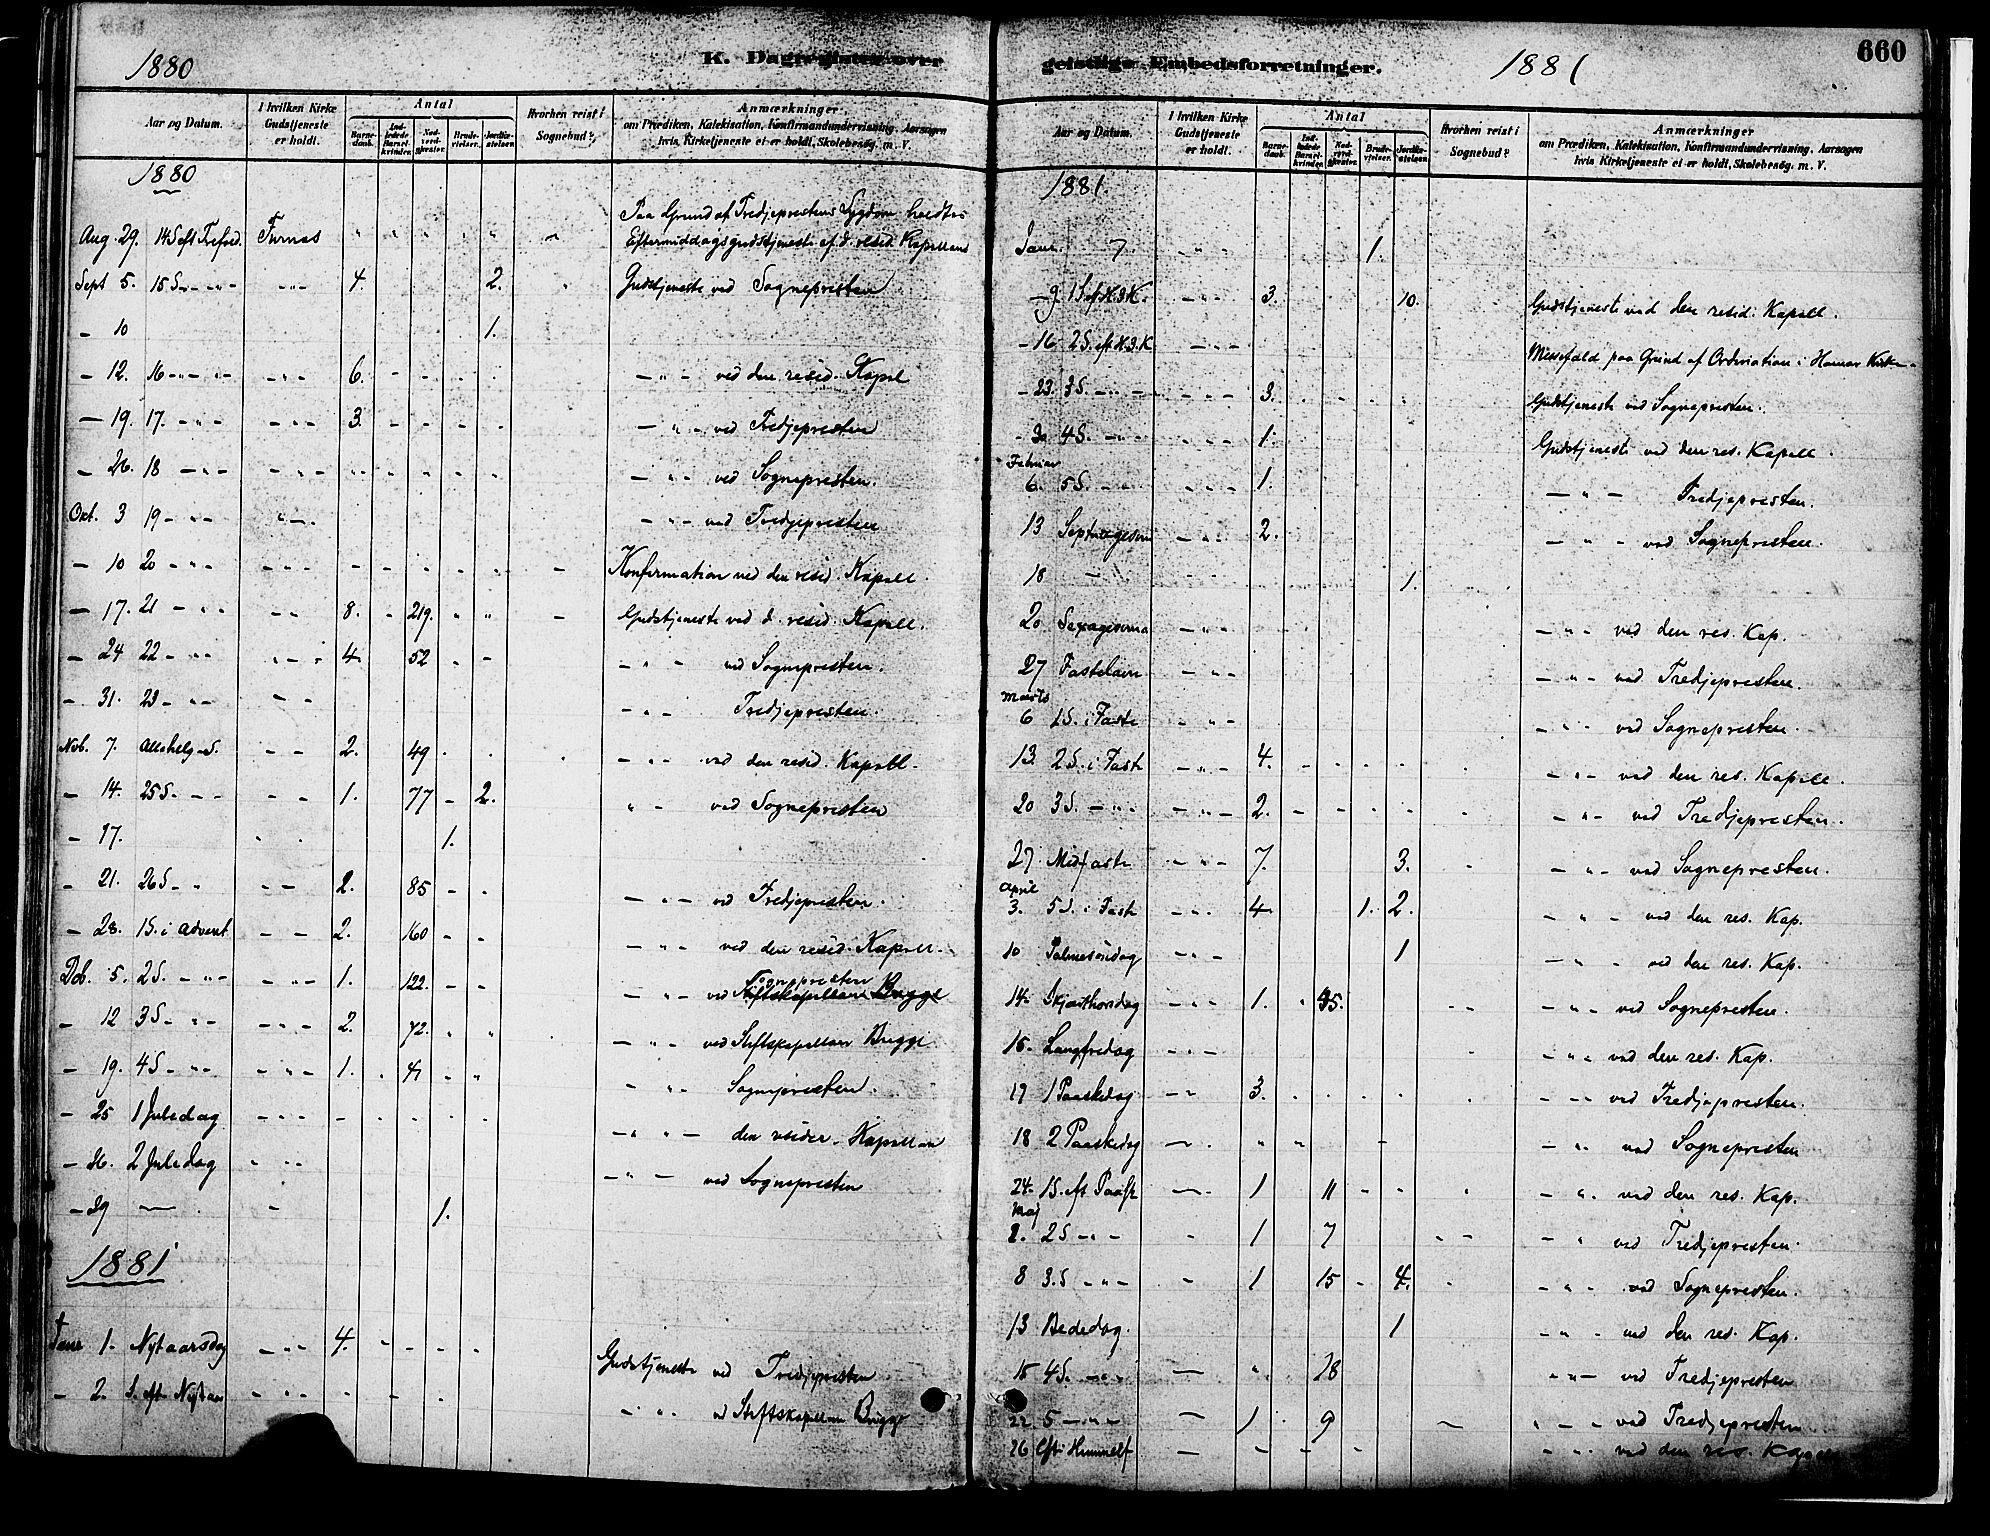 1880
K. Dagregister over
Aar og Datum.
I hvilken Kirke Gudstjeneste er holdt.
Antal
Barnedaab.
Indledede Barselkvinder.
Nadverdgjester.
Brudevielser.
Jordkastelser.
Hvorhen reist i Sognebud?
Anmærkninger
om Prædiken, Katekisation, Konfirmandundervisning, Aarsagen
hvis Kirketjeneste ei er holdt, Skolebesøg, m. V.
1880
Paa Grund af Tredjeprestens Sygdom holdtes
Aug. 29. 14 S eft Trefold. Furnes " " " " " Eftermiddagsgudstjeneste af d. resid. Kapellans
Sept 5. 15 S. - - " - " - 4. 2. Gudstjeneste ved Sognepresten
- 10 1.
- 12. 16 - " - " - " - 6. - " - ved den resid. Kapel
- 19. 17. - " - - " - 3. - " - ved Tredjepresten
- 26. 18 - " - - " - - " - ved Sognepresten.
Okt. 3 19 - " - " - - " - ved Tredjepresten
- 10 20 - " - - " - Konfirmation ved den resid. Kapell.
- 17. 21 - " - - " - 8. 219. Gudstjeneste ved d. resid. Kapell.
- 24 22 - " - - " - 4. 52 - " - ved Sognepresten.
- 31. 23 - " - - " - - " - Tredjepresten.
Nvb. 7. Allehelg-S. - - 2. 49 - " - ved den resid. Kapell.
- 14. 25 S. - - - - 1. 77 - 2. " - ved Sognepresten
- 17. 1.
- 21. 26 S - " - - 2. 85 - - - " - ved Tredjepresten.
- 28. 1 S. i Advent - - 2. 160 - - - " - ved den resid. Kapell.
Sognepresten
Dcb. 5. 2 S. - " - - " - 1. 122. - - - " - ved Stiftskapellan Brygge
- 12 3 S - " - - " - 2. 72. - " - ved Stiftskapellan Brygge
- 19. 4 S - " - - " - 1. - " - Sognepresten.
- 25 1 Juledag - " - - " - den resider. Kapellan
- 26. 2 Juledag - " - - " - ved Sognepresten
- 29 - 1.
1881
Janr 1. Nytaarsdag - " - 4. Gudstjeneste ved Tredjepresten
- 2. S. eft Nytaar - " - - " - ved Stiftskapellan Brygge
geistlige Embedsforretninger.
1881
660
Aar og Datum.
I hvilken Kirke Gudstjeneste er holdt.
Antal
Barnedaab.
Indledede Barselkvinder.
Nadverdgjester.
Brudevielser.
Jordkastelser.
Hvorhen reist i Sognebud?
Anmærkninger
om Prædiken, Katekisation, Konfirmandundervisning, Aarsagen
hvis Kirketjeneste ei er holdt, Skolebesøg, m. V.
1881.
Janr. 7. " " 1.
- 9. 1 S. ef. H.3.K. - " - 3. 10. Gudstjeneste ved den resid. Kapell.
- 16 2 S. eft H.3.K - " - Messefald paa Grund af Ordination i Hamar Kirke.
- 23. 3 S. - " - - " - 3. Gudstjeneste ved Sognepresten.
- 30 4 S. - " - - " - 1. Gudstjeneste ved den res. Kapell.
Februar
6. 5 S. - " - - " - 1. - " - Tredjepresten.
13 Septuagesima - " - 2. - " - ved Sognepresten.
18 - - " - 1.
20. Sexagesima - " - - " - ved den res. Kap.
27 Fastelavn - " - - " - ved Tredjepresten.
Marts
6 1 S. i Faste - " - - " - ved Sognepresten.
13. 2 S. i Fast - " - 4. - " - ved den res. Kapell.
20 3 S. - " - - " - 2. - " - ved Tredjepresten.
27 Midfaste - " - 7. 3. - " - ved Sognepresten.
April
3. 5 S. i Fast - " - 4. 1. 2. - " - ved den res. Kap.
10 Palmesöndag - " - 1 - " - ved den res. Kap.
14. Skjærthorsdag - " - 1. 35. - " - ved Sognepresten.
15. Langfredag - " - - " - ved den res. Kap.
17 1 Paaskedag - " - 3. - " - ved Tredjepresten.
18 2 Paaskedag - " - - " - ved Sognepresten
24. 1 S. eft Paask - 1 11 - " - ved den res. Kap.
Maj
1. 2 S - " - - 1 7 - " - ved Tredjepresten.
8 3. S - " - - 1 15 - 4. - " - ved Sognepresten.
13 Bededag. 1 - " - ved den res. Kap.
15 4 S. - " - - " 28 - " - ved Tredjepresten
22 5 - " - - 1 9 - - " - ved Tredjepresten
26 Chr. Himmelf - - - " - ved den res. Kapell